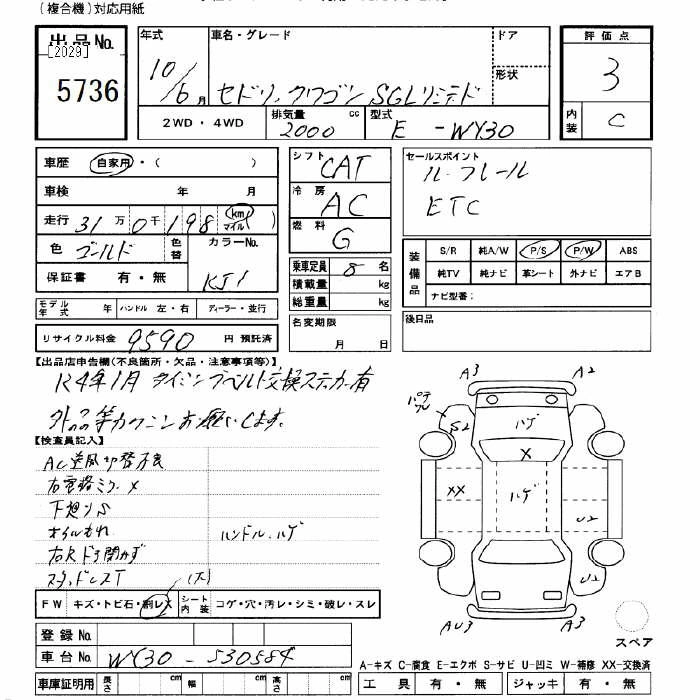 (複合機)対応用紙
出品No.
[2029]
5736
年式
10/6月
車名・グレード
セドリックワゴン SGLリミテド
ドア
形状
2WD・4WD
排気量 2000 cc
型式 E-WY30
評価点
3
内装
C
車歴 自家用・( )
車検 年 月
走行 31万0千198 km マイル( )
色 ゴールド
色替
カラーNo.
KJ1
保証書 有・無
モデル年式 年 ハンドル 左・右 ディーラー・並行
リサイクル料金 9590 円 預託済
シフト CAT
冷房 AC
燃料 G
乗車定員 8 名
積載量 kg
総重量 kg
名変期限
月 日
セールスポイント
ルーフレール
ETC
装備品
S/R 純A/W P/S P/W ABS
純TV 純ナビ 革シート 外ナビ エアB
ナビ型番:
後日品
【出品店申告欄(不良箇所・欠品・注意事項等)】
R4年1月 タイミングベルト交換ステッカー有
【検査員記入】
AC送風切替不良
右電格ミラー×
下廻りS
オイルもれ
ハンドル、ハゲ
スタッドレスT
FW キズ・トビ石・割レ大
(大)
シート内装 コゲ・穴・汚レ・シミ・破レ・スレ
登録No.
車台No. WY30-530584
車庫証明用 長さ cm 幅 cm 高さ cm
A3
A2
S2
ハゲ
X
XX
ハゲ
U2
U2
AU3
A3
スペア
A-キズ C-腐食 E-エクボ S-サビ U-凹ミ W-補修 XX-交換済
工具 有・無 ジャッキ 有・無